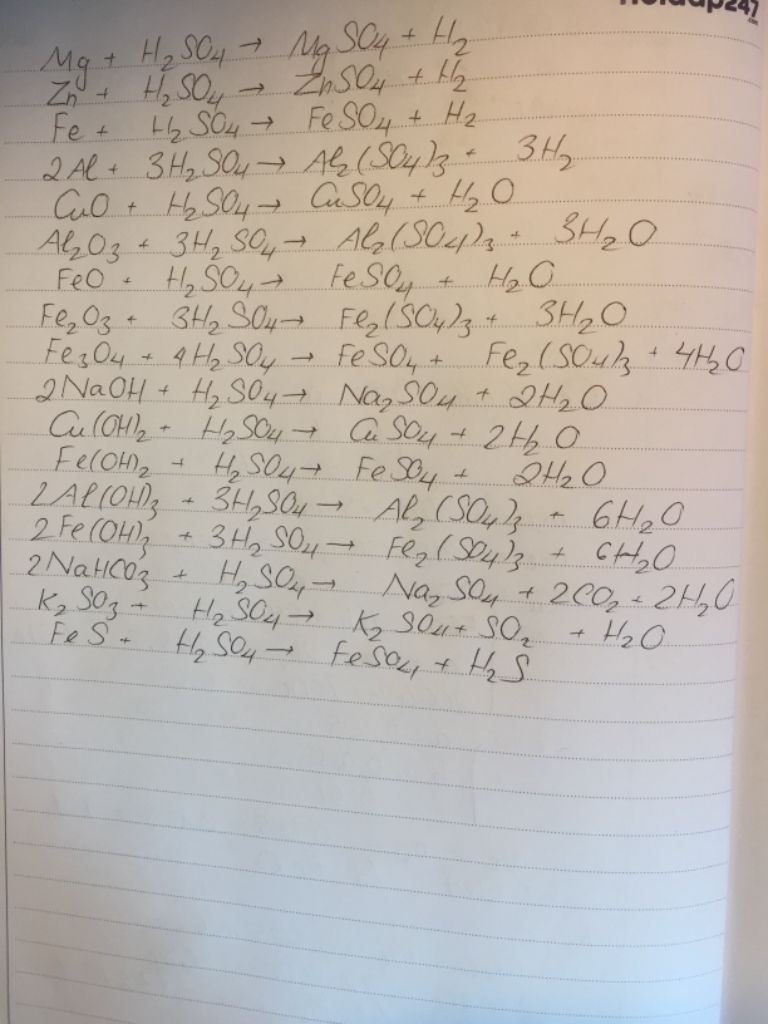 Hoidap247
.com
Mg + H₂SO₄ → MgSO₄ + H₂
Zn + H₂SO₄ → ZnSO₄ + H₂
Fe + H₂SO₄ → FeSO₄ + H₂
2Al + 3H₂SO₄ → Al₂(SO₄)₃ + 3H₂
CuO + H₂SO₄ → CuSO₄ + H₂O
Al₂O₃ + 3H₂SO₄ → Al₂(SO₄)₃ + 3H₂O
FeO + H₂SO₄ → FeSO₄ + H₂O
Fe₂O₃ + 3H₂SO₄ → Fe₂(SO₄)₃ + 3H₂O
Fe₃O₄ + 4H₂SO₄ → FeSO₄ + Fe₂(SO₄)₃ + 4H₂O
2NaOH + H₂SO₄ → Na₂SO₄ + 2H₂O
Cu(OH)₂ + H₂SO₄ → CuSO₄ + 2H₂O
Fe(OH)₂ + H₂SO₄ → FeSO₄ + 2H₂O
2Al(OH)₃ + 3H₂SO₄ → Al₂(SO₄)₃ + 6H₂O
2Fe(OH)₃ + 3H₂SO₄ → Fe₂(SO₄)₃ + 6H₂O
2NaHCO₃ + H₂SO₄ → Na₂SO₄ + 2CO₂ + 2H₂O
K₂SO₃ + H₂SO₄ → K₂SO₄ + SO₂ + H₂O
FeS + H₂SO₄ → FeSO₄ + H₂S